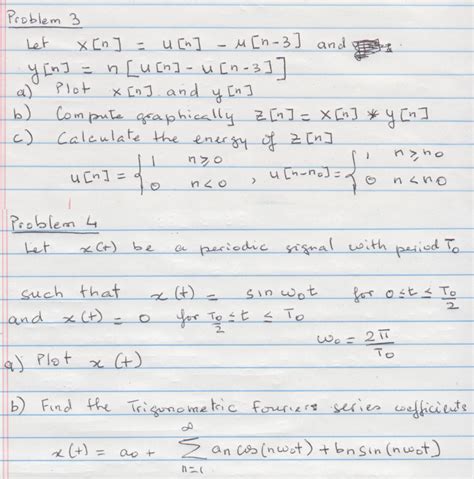 Problem 3
Let x[n] = u[n] - u[n-3] and
y[n] = n[u[n] - u[n-3]]
a) Plot x[n] and y[n]
b) Compute graphically z[n] = x[n] * y[n]
c) Calculate the energy of z[n]
u[n] = { 1 n≥0 0 n<0 , u[n-n0] = { 1, n≥n0 0 n<n0
Problem 4
Let x(t) be a periodic signal with period T0
such that x(t) = sin ω0t for 0≤t≤T0/2
and x(t) = 0 for T0/2 ≤t ≤ T0
ω0 = 2π/T0
a) Plot x(t)
b) Find the Trigonometric Fouriers series coefficients
x(t) = a0 + ∞ Σ n=1 an cos(nω0t) + bn sin(nω0t)